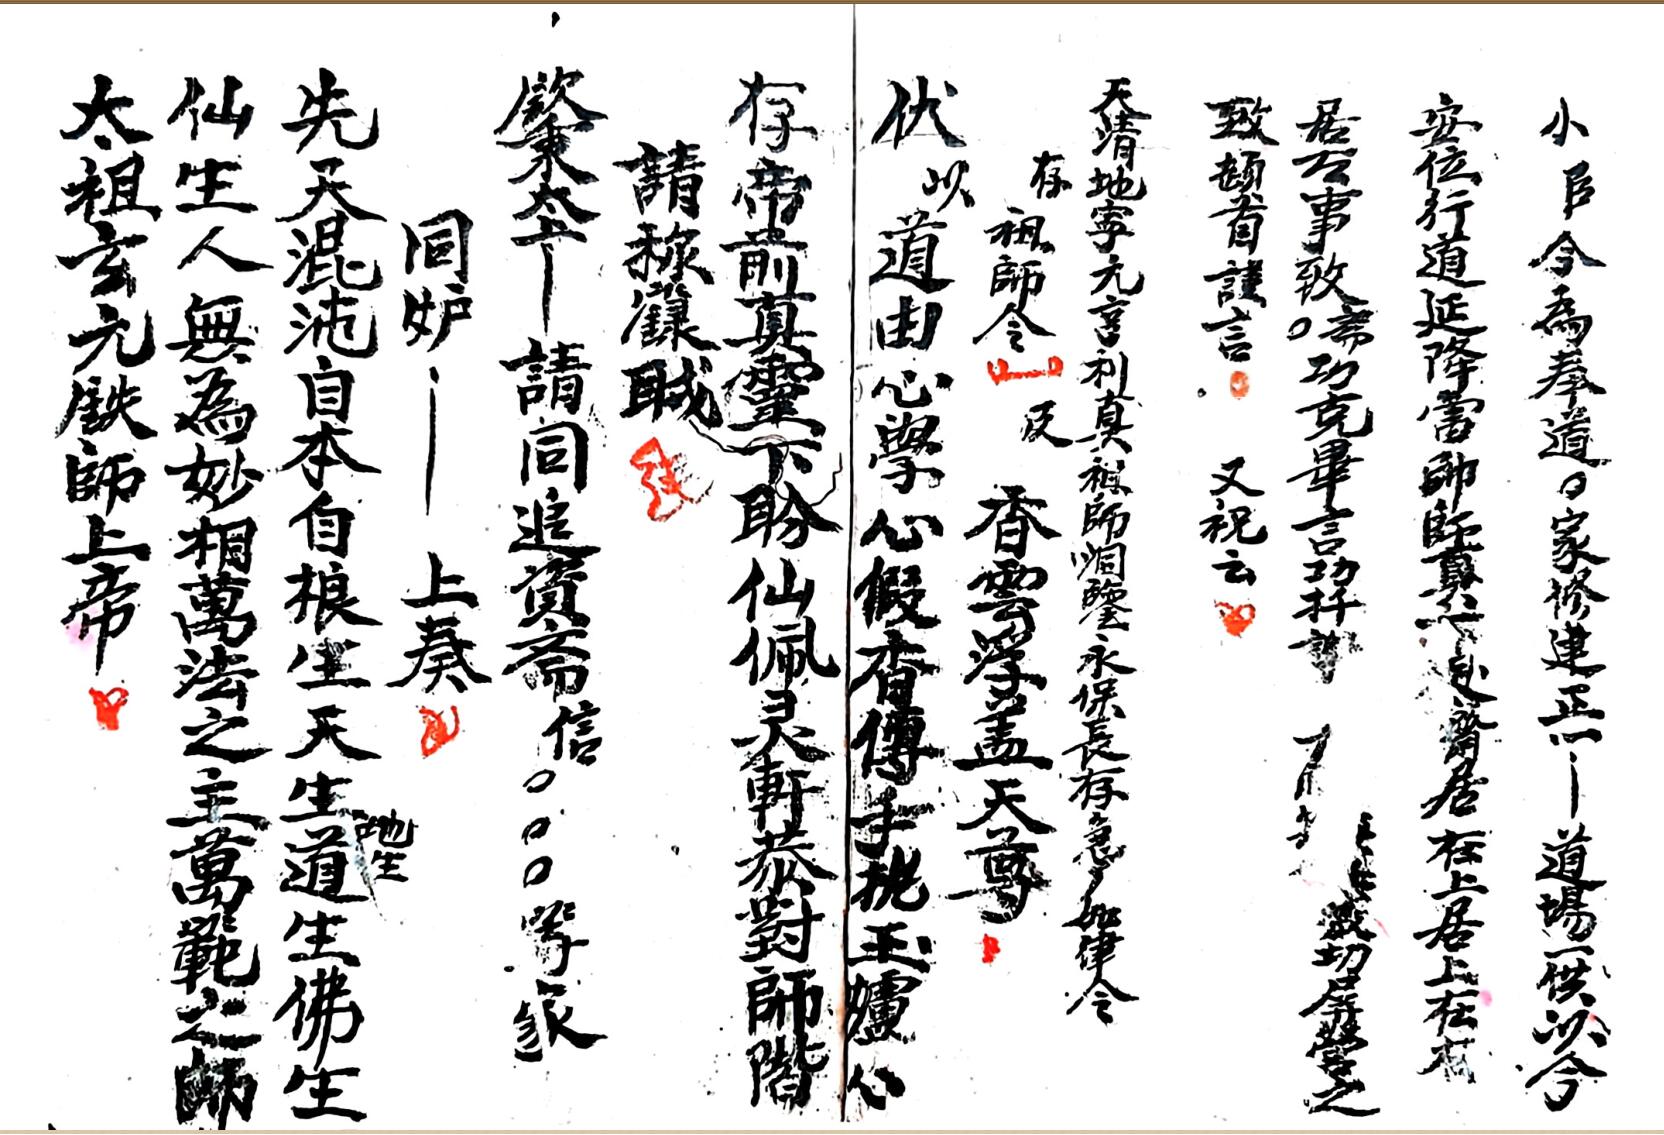 小臣今為奉道○家修建正一丨道場一供以今
安位行道延降雷師師真丨赴齋居在上居上在右
居公事致齋○功克畢言功扦謝 激切屏營之
致頓首謹言 又祝云
天清地寧元亨利真祖師烱鑒永保長存急々如律令
存祖師令 及 香雲浮盖天尊
伏以道由心學心假香傳手挑玉爐心
存帝前真靈下盼仙佩灵軒恭對師階
請称籙職
啟東太上丨請同追資斋信○○○等家
同妒丨上奏
先天混沌自本自根生天生地生道生佛生
仙生人無為妙相萬法之主萬範之師
太祖玄元鉄師上帝